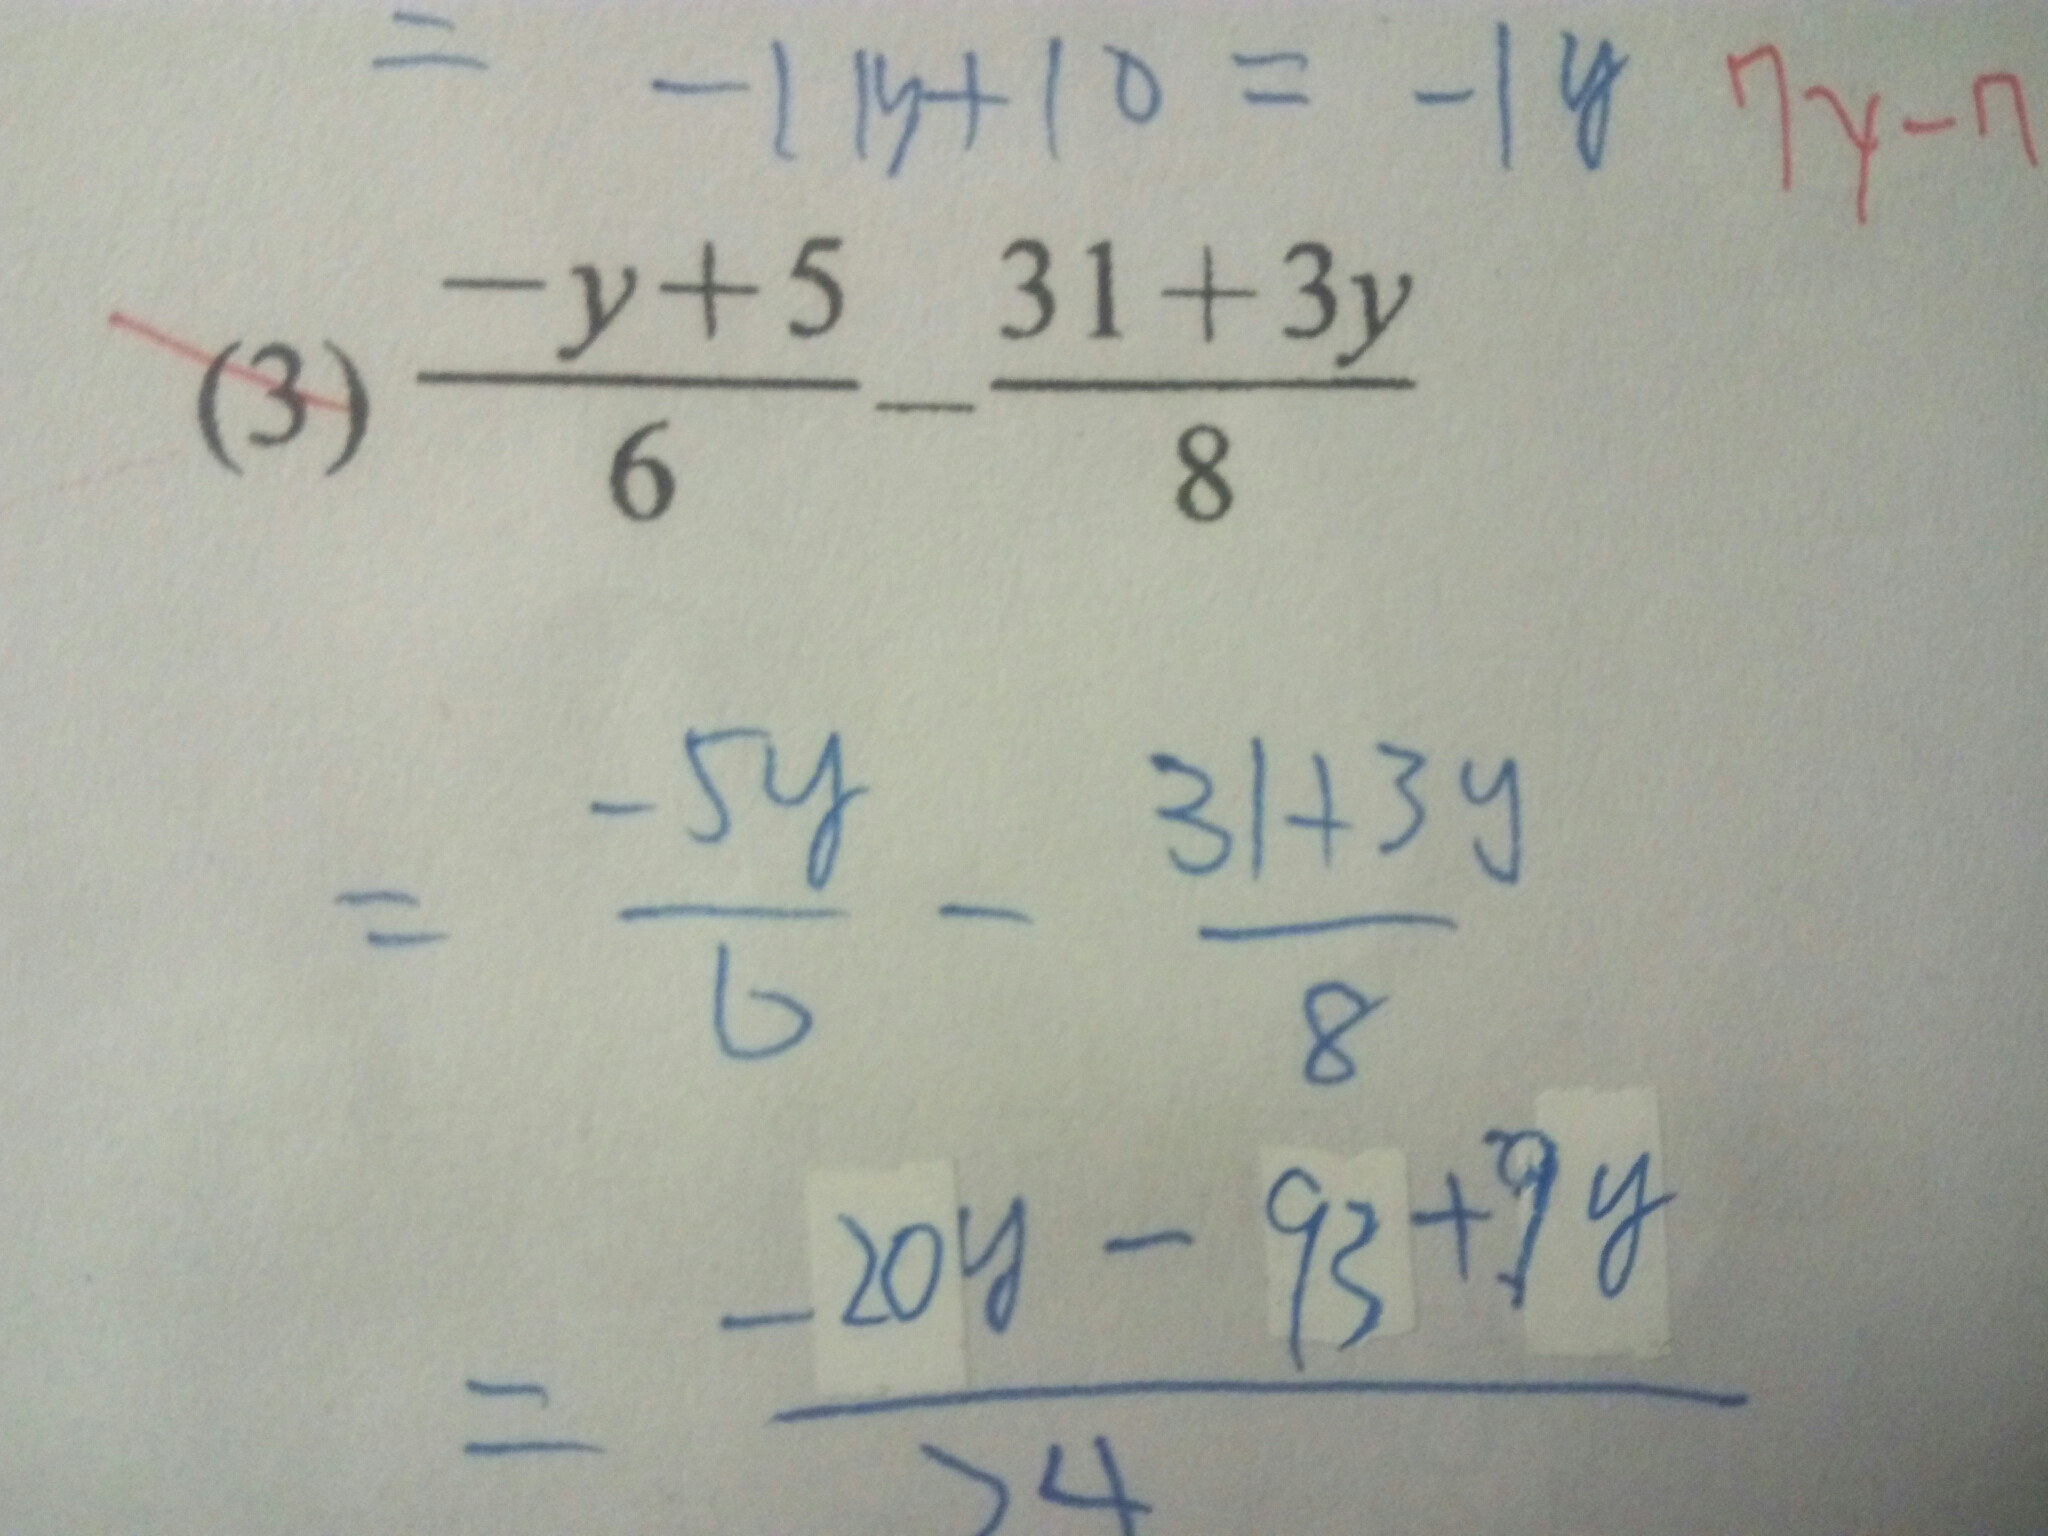 = -11y+10 = -1y 7y-7
(3) \frac{-y+5}{6} - \frac{31+3y}{8}
= \frac{-5y}{6} - \frac{31+3y}{8}
= \frac{-20y-93+9y}{24}